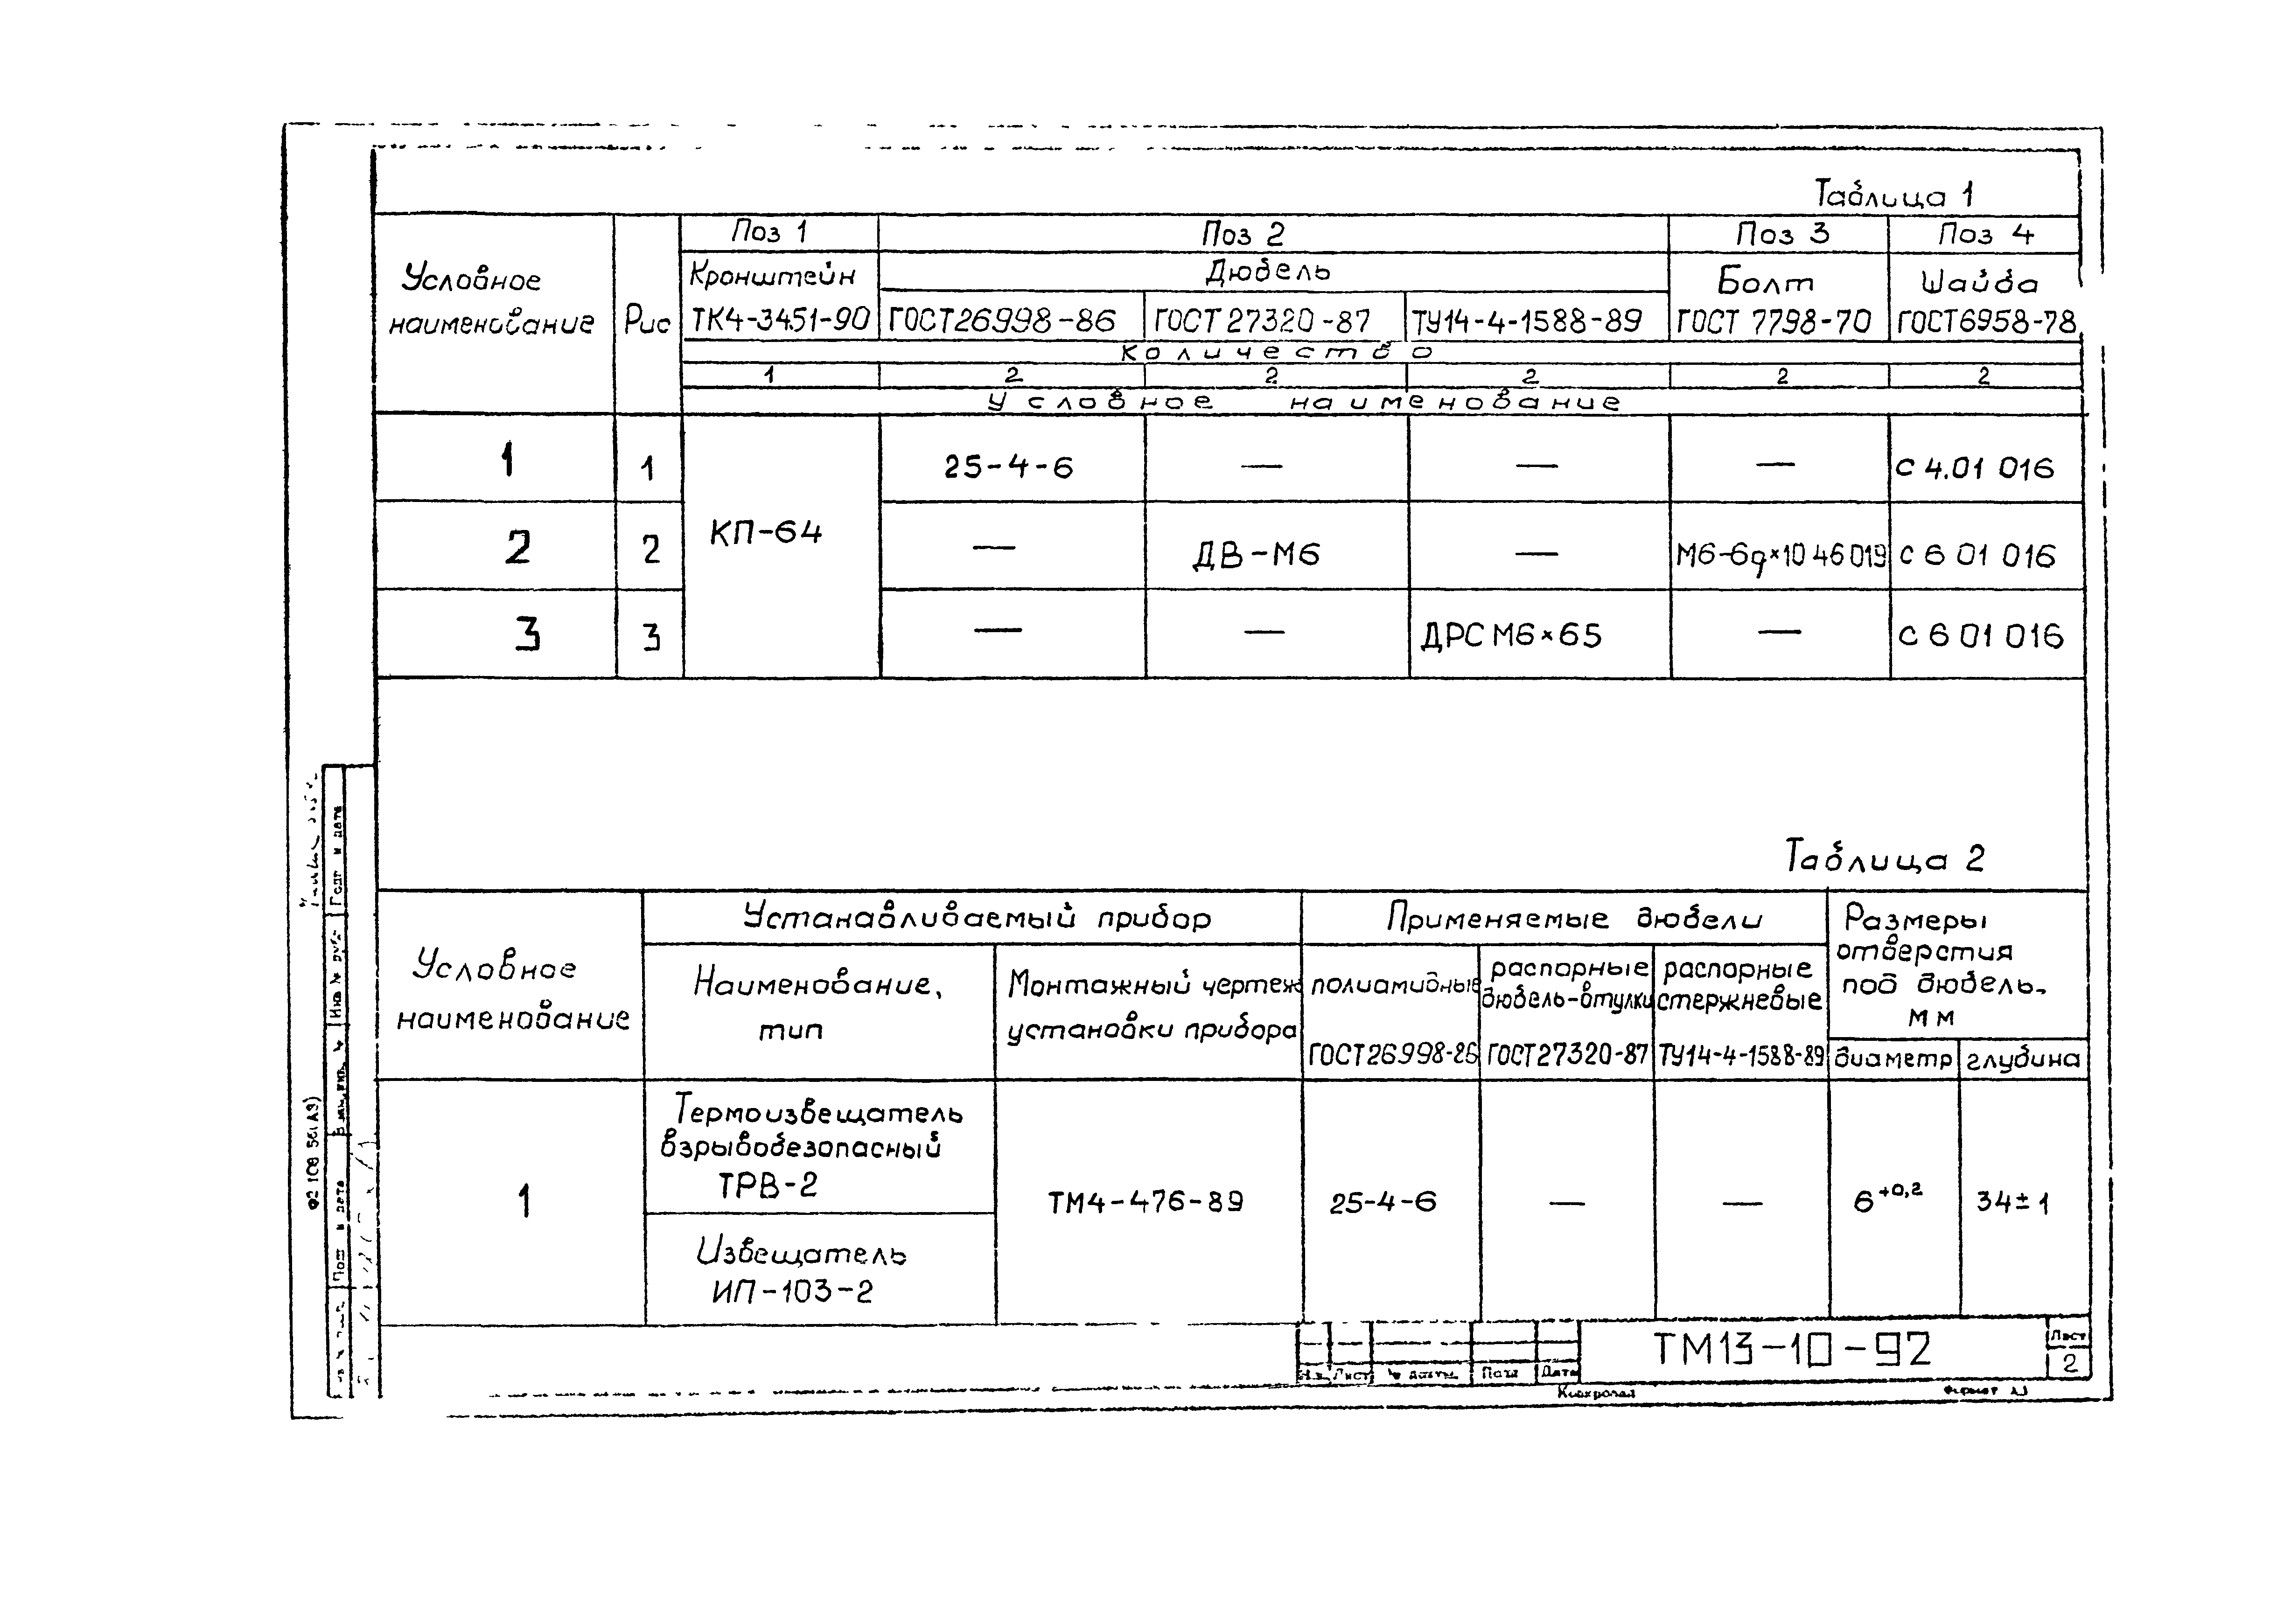 Таблица 1
Условное наименование
Рис
Поз 1
Поз 2
Поз 3
Поз 4
Кронштейн
ТК4-3451-90
Дюбель
ГОСТ26998-86
ГОСТ 27320-87
ТУ14-4-1588-89
Болт
ГОСТ 7798-70
Шайба
ГОСТ6958-78
Количество
1 2 2 2 2 2
Условное наименование
1 1 КП-64 25-4-6 — — — С 4.01 016
2 2 — ДВ-М6 — М6-6g×10 46 019 С 6 01 016
3 3 — — ДРС М6×65 — С 6 01 016
Таблица 2
Условное
наименование
Устанавливаемый прибор
Наименование,
тип
Монтажный чертеж
установки прибора
Применяемые дюбели
полиамидные
ГОСТ26998-86
распорные
дюбель-втулки
ГОСТ27320-87
распорные
стержневые
ТУ14-4-1588-89
Размеры
отверстия
под дюбель,
мм
диаметр
глубина
1
Термоизвещатель
взрывобезопасный
ТРВ-2
Извещатель
ИП-103-2
ТМ4-476-89
25-4-6
—
—
6+0,2
34±1
ТМ13-10-92
Лист
2
Лист
Дата
Копировал
Формат А3
Подп и дата
Взам. инв. №
Подп и дата
Ф2 108 5б(А3)